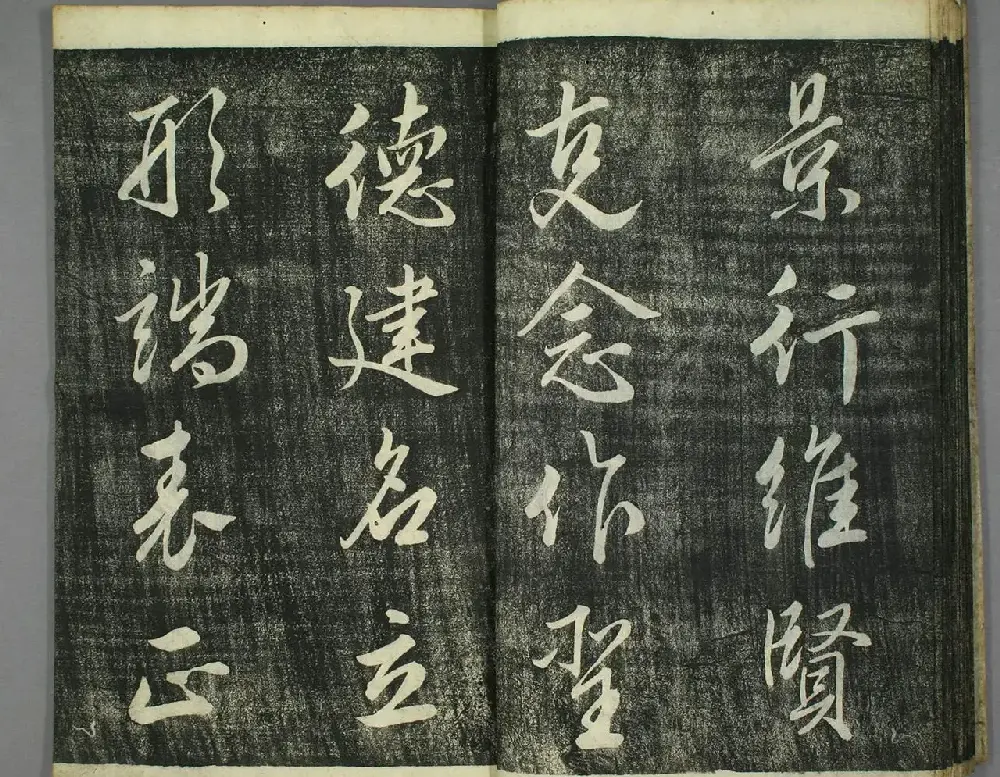 景行維賢
克念作聖
德建名立
形端表正